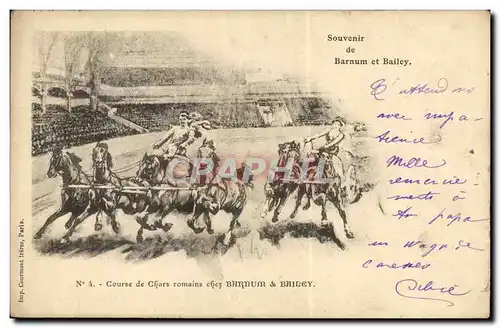 Souvenir
de
Barnum et Bailey.
T'attend ns
avec impa-
tience
Mille
remercie-
ments à
ton papa
un Wago de
Caresses
Nº 4. - Course de Chars romains chez BARNUM & BAILEY.
Imp. Courmont frères, Paris.
CPRARAMA